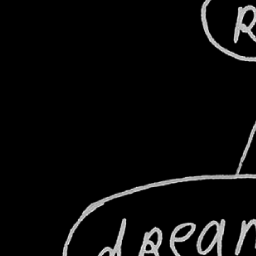 R
drean